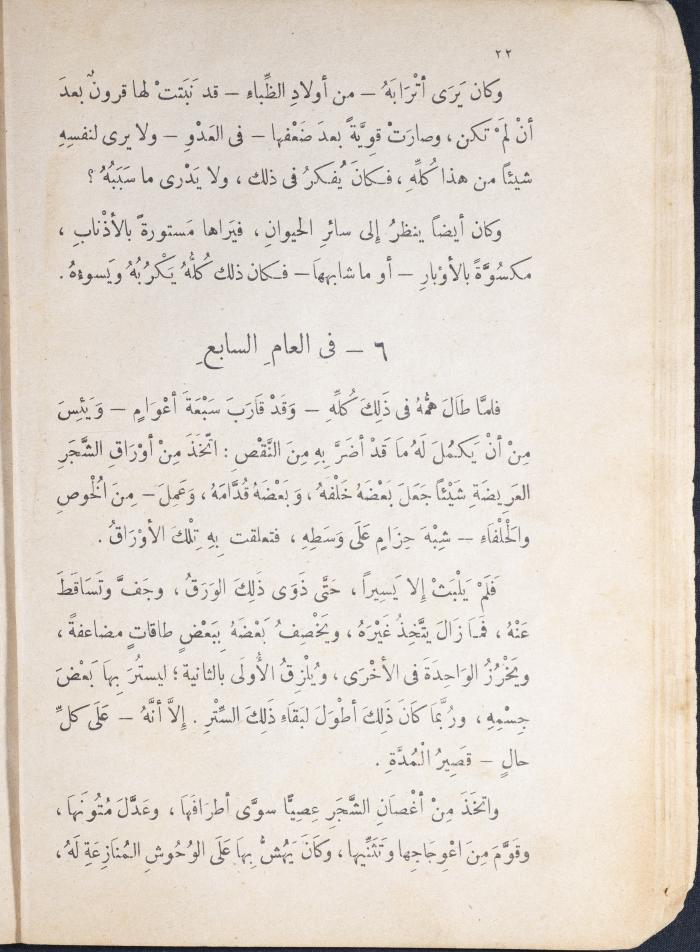 ٢٢
وكان يَرَى أتْرَابَهُ – من أولادِ الظِّباءِ – قد نَبَتتْ لها قرونٌ بعدَ
أنْ لَمْ تكن، وصارَتْ قويَّةً بعدَ ضَعْفِها – فى العَدْوِ – ولا يرى لنفسِهِ
شيئاً من هذا كُلِّهِ، فكانَ يُفكرُ فى ذلك، ولا يَدْرى ما سَبَبُهُ؟
وكان أيضاً ينظرُ إلى سائرِ الحيوانِ، فيَراها مَستورةً بالأذْنابِ،
مكسُوَّةً بالأوْبارِ – أو ما شابهها – فكان ذلك كُلُّهُ يَكْرُبُهُ ويَسوءُهُ.
٦ – فى العامِ السابعِ
فلمَّا طَالَ هَمُّهُ فى ذَلِكَ كُلِّهِ – وَقَدْ قَارَبَ سَبْعَةَ أعْوَامٍ – وَيَئِسَ
مِنْ أنْ يَكمُلَ لَهُ مَا قَدْ أضَرَّ بِهِ مِنَ النَّقْصِ: اتّخَذَ مِنْ أوْرَاقِ الشَّجَرِ
العَرِيضَةِ شَيْئاً جَعَلَ بَعْضَهُ خَلْفَهُ، وَبَعْضَهُ قُدَّامَهُ، وَعَمِلَ – مِنَ الْخُوصِ
والْحَلْفَاءِ – شِبْهَ حِزَامٍ عَلَى وَسَطِهِ، فتعلقت بِهِ تِلْكَ الأوْرَاقُ.
فَلَمْ يَلْبَثْ إلا يَسِيراً، حَتَّى ذَوَى ذَلِكَ الوَرَقُ، وجَفَّ وتَسَاقَطَ
عَنْهُ، فَمَا زَالَ يتَّخِذُ غَيْرَهُ، ويَخْصِفُ بَعْضَهُ بِبَعْضٍ طاقاتٍ مضاعفةً،
ويَخْرُزُ الوَاحِدَةَ فى الأخْرَى، ويُلْزِقُ الأُولَى بالثانية؛ ليستُرَ بِهَا بَعْضَ
جِسْمِهِ، ورُبَّمَا كَانَ ذَلِكَ أطْوَلَ لبَقَاءِ ذَلِكَ السِّتْرِ. إلاَّ أنَّهُ – عَلَى كلِّ
حالٍ – قَصِيرُ الْمُدَّةِ.
واتخَذَ مِنْ أغْصَانِ الشَّجَرِ عِصِيًّا سوَّى أطرَافَهَا، وعَدَّلَ مُتُونَهَا،
وقَوَّمَ مِنَ اعْوِجَاجِها وتَثَنِّيها، وكَانَ يَهُشُّ بِهَا عَلَى الوُحُوشِ المُنَازِعَةِ لَهُ،